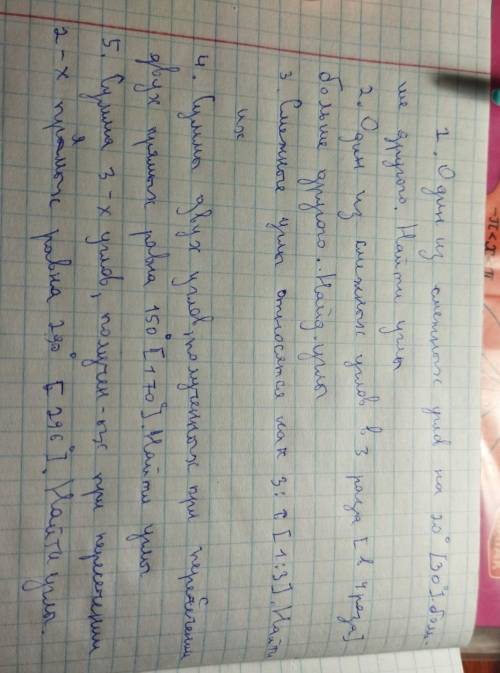 1. Один из смежных углов на 20° [30°] боль-
ше другого. Найти углы
2. Один из смежных углов в 3 раза [в 4 раза]
больше другого. Найд. углы
3. Смежные углы относятся как 3: [1:3]. Найти
их
4. Сумма двух углов, полученных при пересечении
двух прямых равна 150° [170°]. Найти углы
5. Сумма 3-х углов, получен-ых при пересечении
2-х прямых равна 290° [296°]. Найти углы.